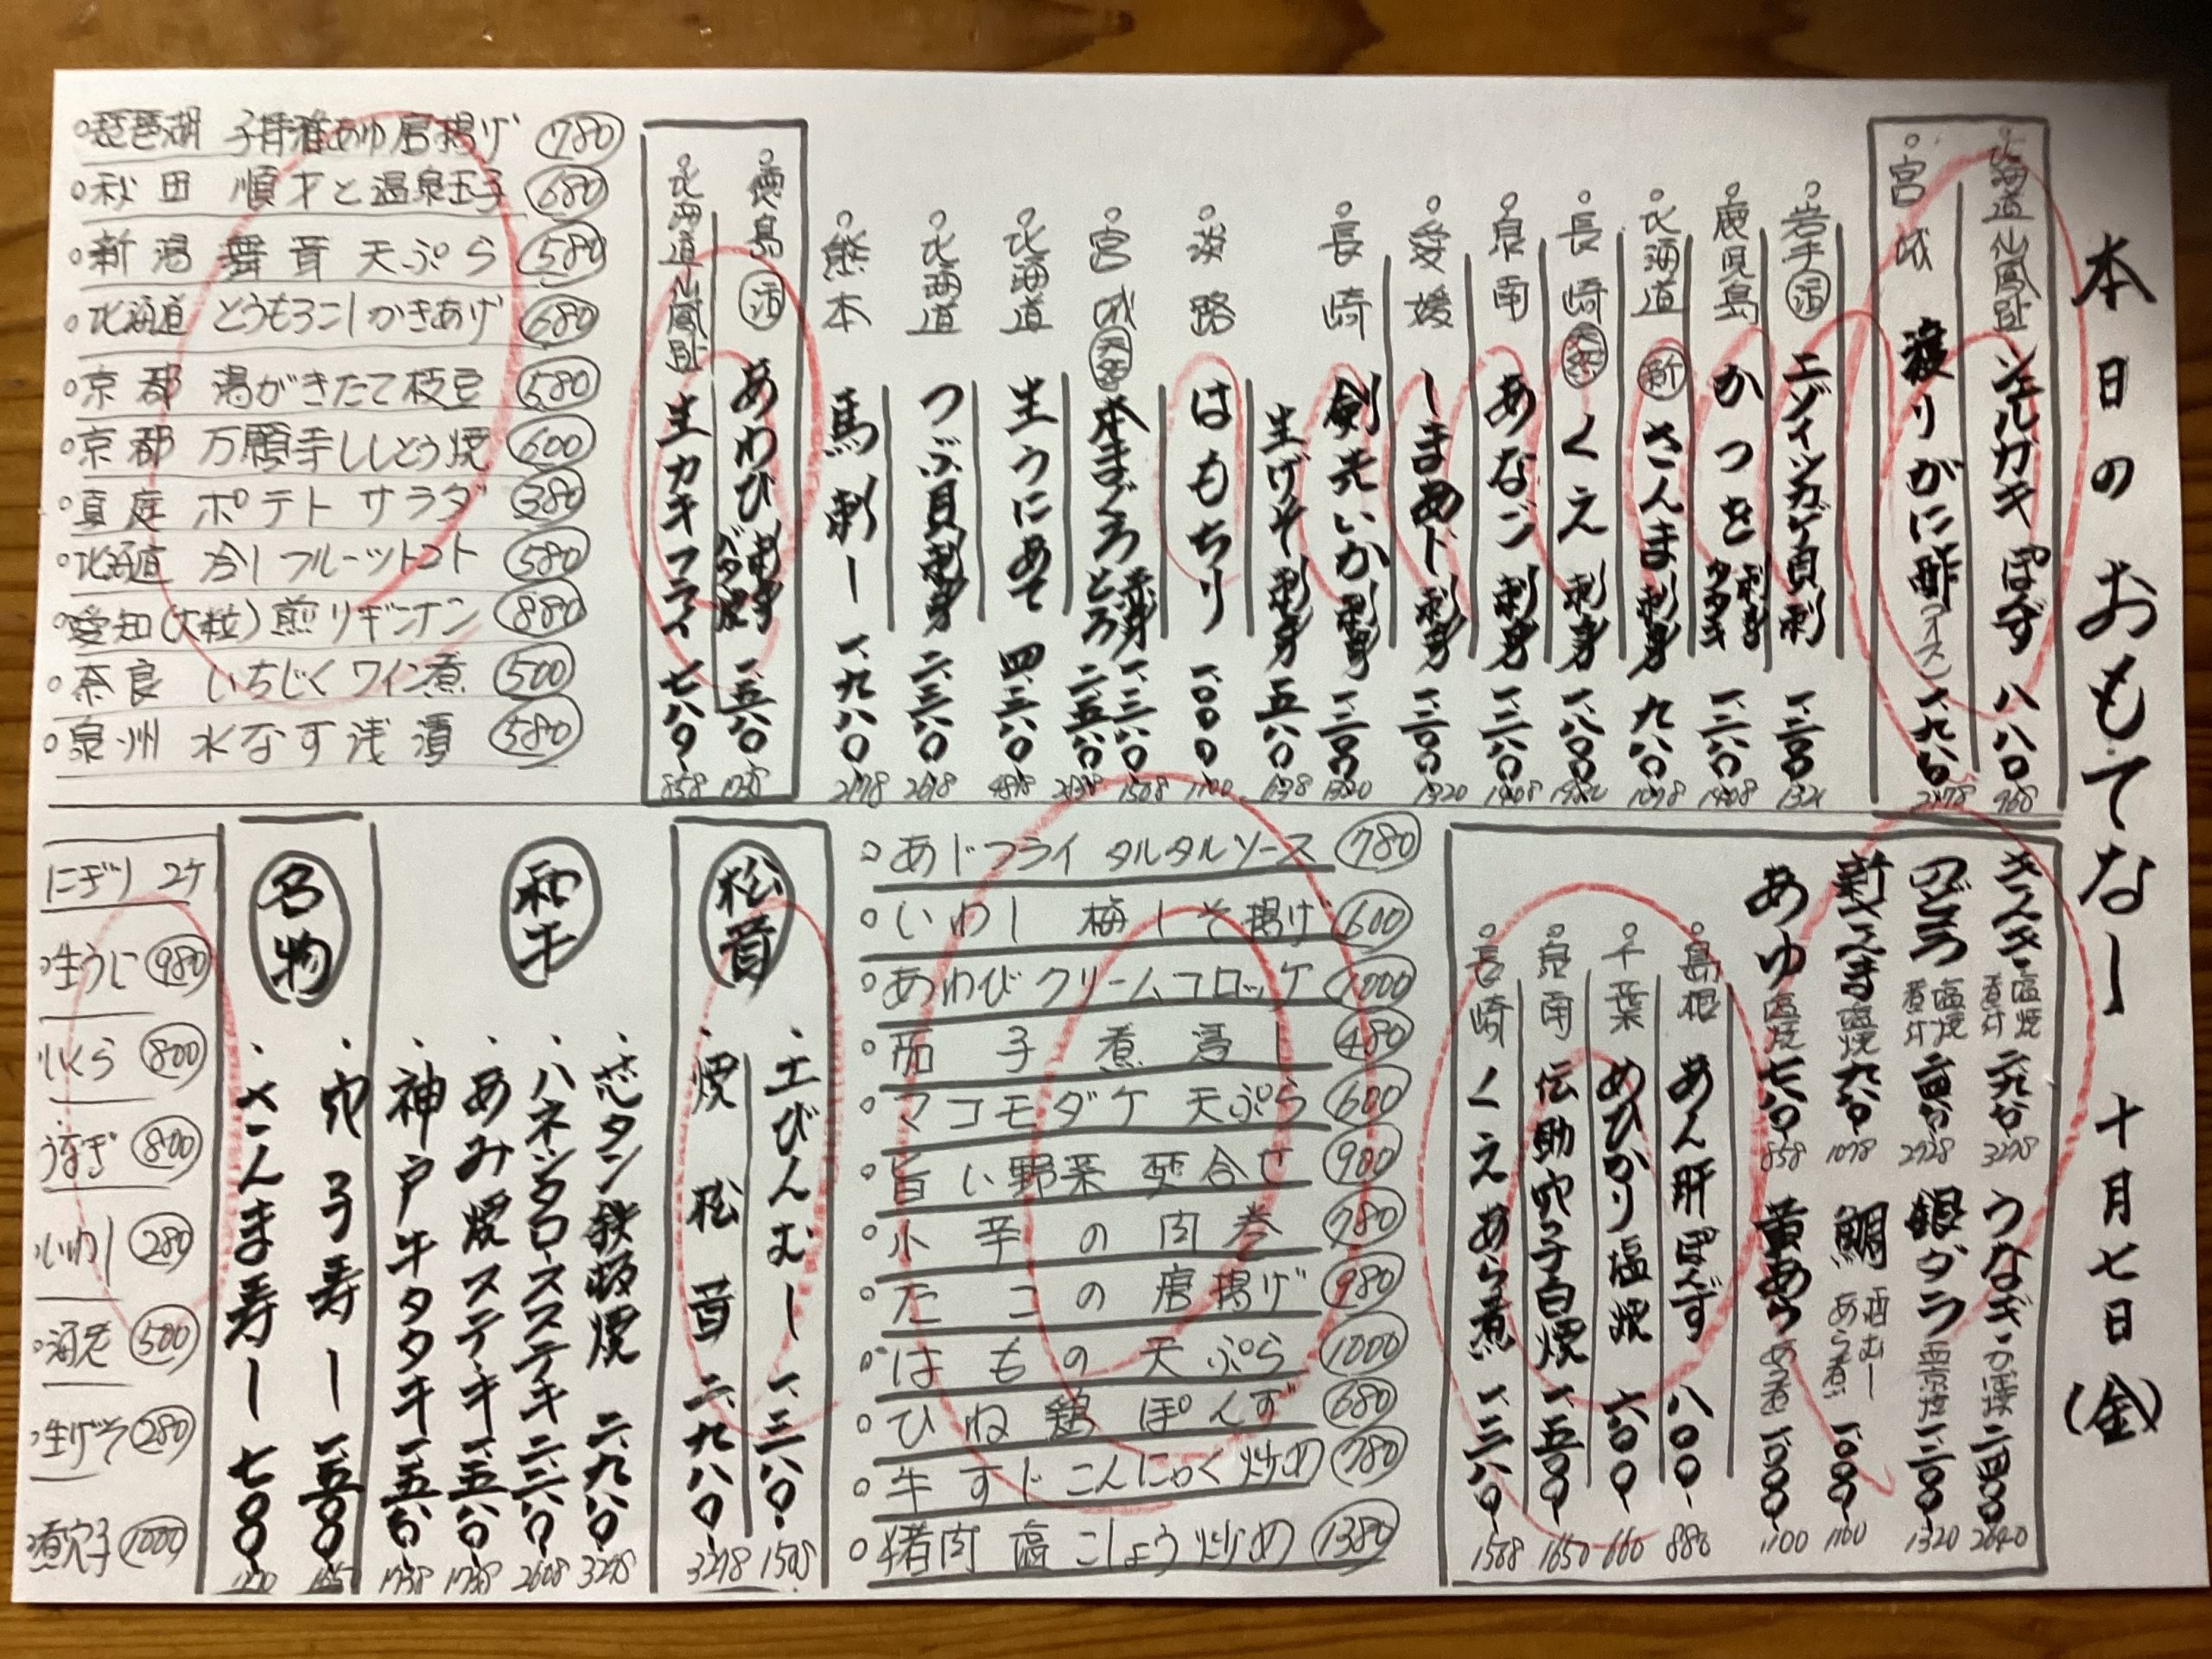 本日のおもてなし 十月七日(金)
北海道仙鳳趾 シェルカキ ぽんず 八八〇 968
宮城 渡りがに酢(アイス) 一、九八〇 2178
岩手 活 エゾイシガケ貝刺 一、二〇〇
鹿児島 かつを 刺身 タタキ 一、二八〇 1408
北海道 新 さんま刺身 九八〇 1078
長崎 天然 くえ刺身 一、八〇〇
泉南 あなご刺身 一、二八〇 1408
愛媛 しまあじ刺身 一、二〇〇 1320
長崎 剣先いか刺身 一、二〇〇 1320
生げそ刺身 五八〇
淡路 はもちり 一、〇〇〇 1100
宮城 天然 本まぐろ 赤身 一、三八〇 1508
とろ 二、五八〇
北海道 生うにあて 四、三八〇
北海道 つぶ貝刺身 二、三八〇 2618
熊本 馬刺し 一、九八〇 2178
徳島 活 あわび 刺身 バタ焼 一、五八〇 1738
北海道仙鳳趾 生カキフライ 七八〇 858
琵琶湖 子持稚あゆ唐揚げ 780
秋田 順才と温泉玉子 680
新潟 舞茸天ぷら 580
北海道 とうもろこしかきあげ 680
京都 湯がきたて枝豆 580
京都 万願寺ししとう焼 600
真庭 ポテトサラダ 380
北海道 冷しフルーツトマト 580
愛知(大粒)煎りギンナン 880
奈良 いちじくワイン煮 500
泉州 水なす浅漬 580
きんき 塩焼 煮付 二、九八〇 3278
うなぎ かば焼 二、四〇〇 2640
のどぐろ 塩焼 煮付 二、四八〇 2728
銀ダラ 西京焼 一、二〇〇 1320
新さんま 塩焼 九八〇 1078
鯛 酒むし あら煮 一、〇〇〇 1100
あゆ 塩焼 七八〇 858
一、〇〇〇 1100
島根 あん肝ぽんず 八〇〇 880
千葉 めひかり塩焼 六〇〇 660
泉南 伝助穴子白焼 一、五〇〇 1650
長崎 くえあら煮 一、三八〇 1508
あじフライ タルタルソース 780
いわし 梅しそ揚げ 600
あわびクリームコロッケ 1000
茄子煮浸し 480
マコモダケ 天ぷら 600
旨い野菜 焚合せ 900
小芋の肉巻 780
たこの唐揚げ 980
はもの天ぷら 1000
ひね鶏ぽんず 680
牛すじこんにゃく炒め 780
猪肉塩こしょう炒め 1380
松茸
土びんむし 一、三八〇 1508
焼松茸 二、九八〇 3278
和牛
芯タン鉄板焼 二、九八〇 3278
ハネシタロースステキ 二、三八〇
あみ焼ステキ 一、五八〇 1738
神戸牛タタキ 一、五八〇 1738
名物
穴子寿し 一、五〇〇
さんま寿し 七〇〇
にぎり 2ケ
生うに 980
いくら 800
うなぎ 800
いわし 280
海老 500
生げそ 280
煮穴子 1000